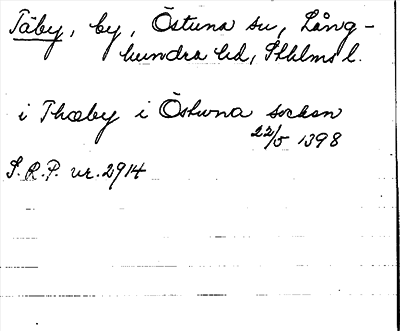 Täby, by, Östuna sn, Lång-
hundra hd, Sthlms l.
i Thæby i Östwna socken
22/5 1398
S.R.P. nr. 2914